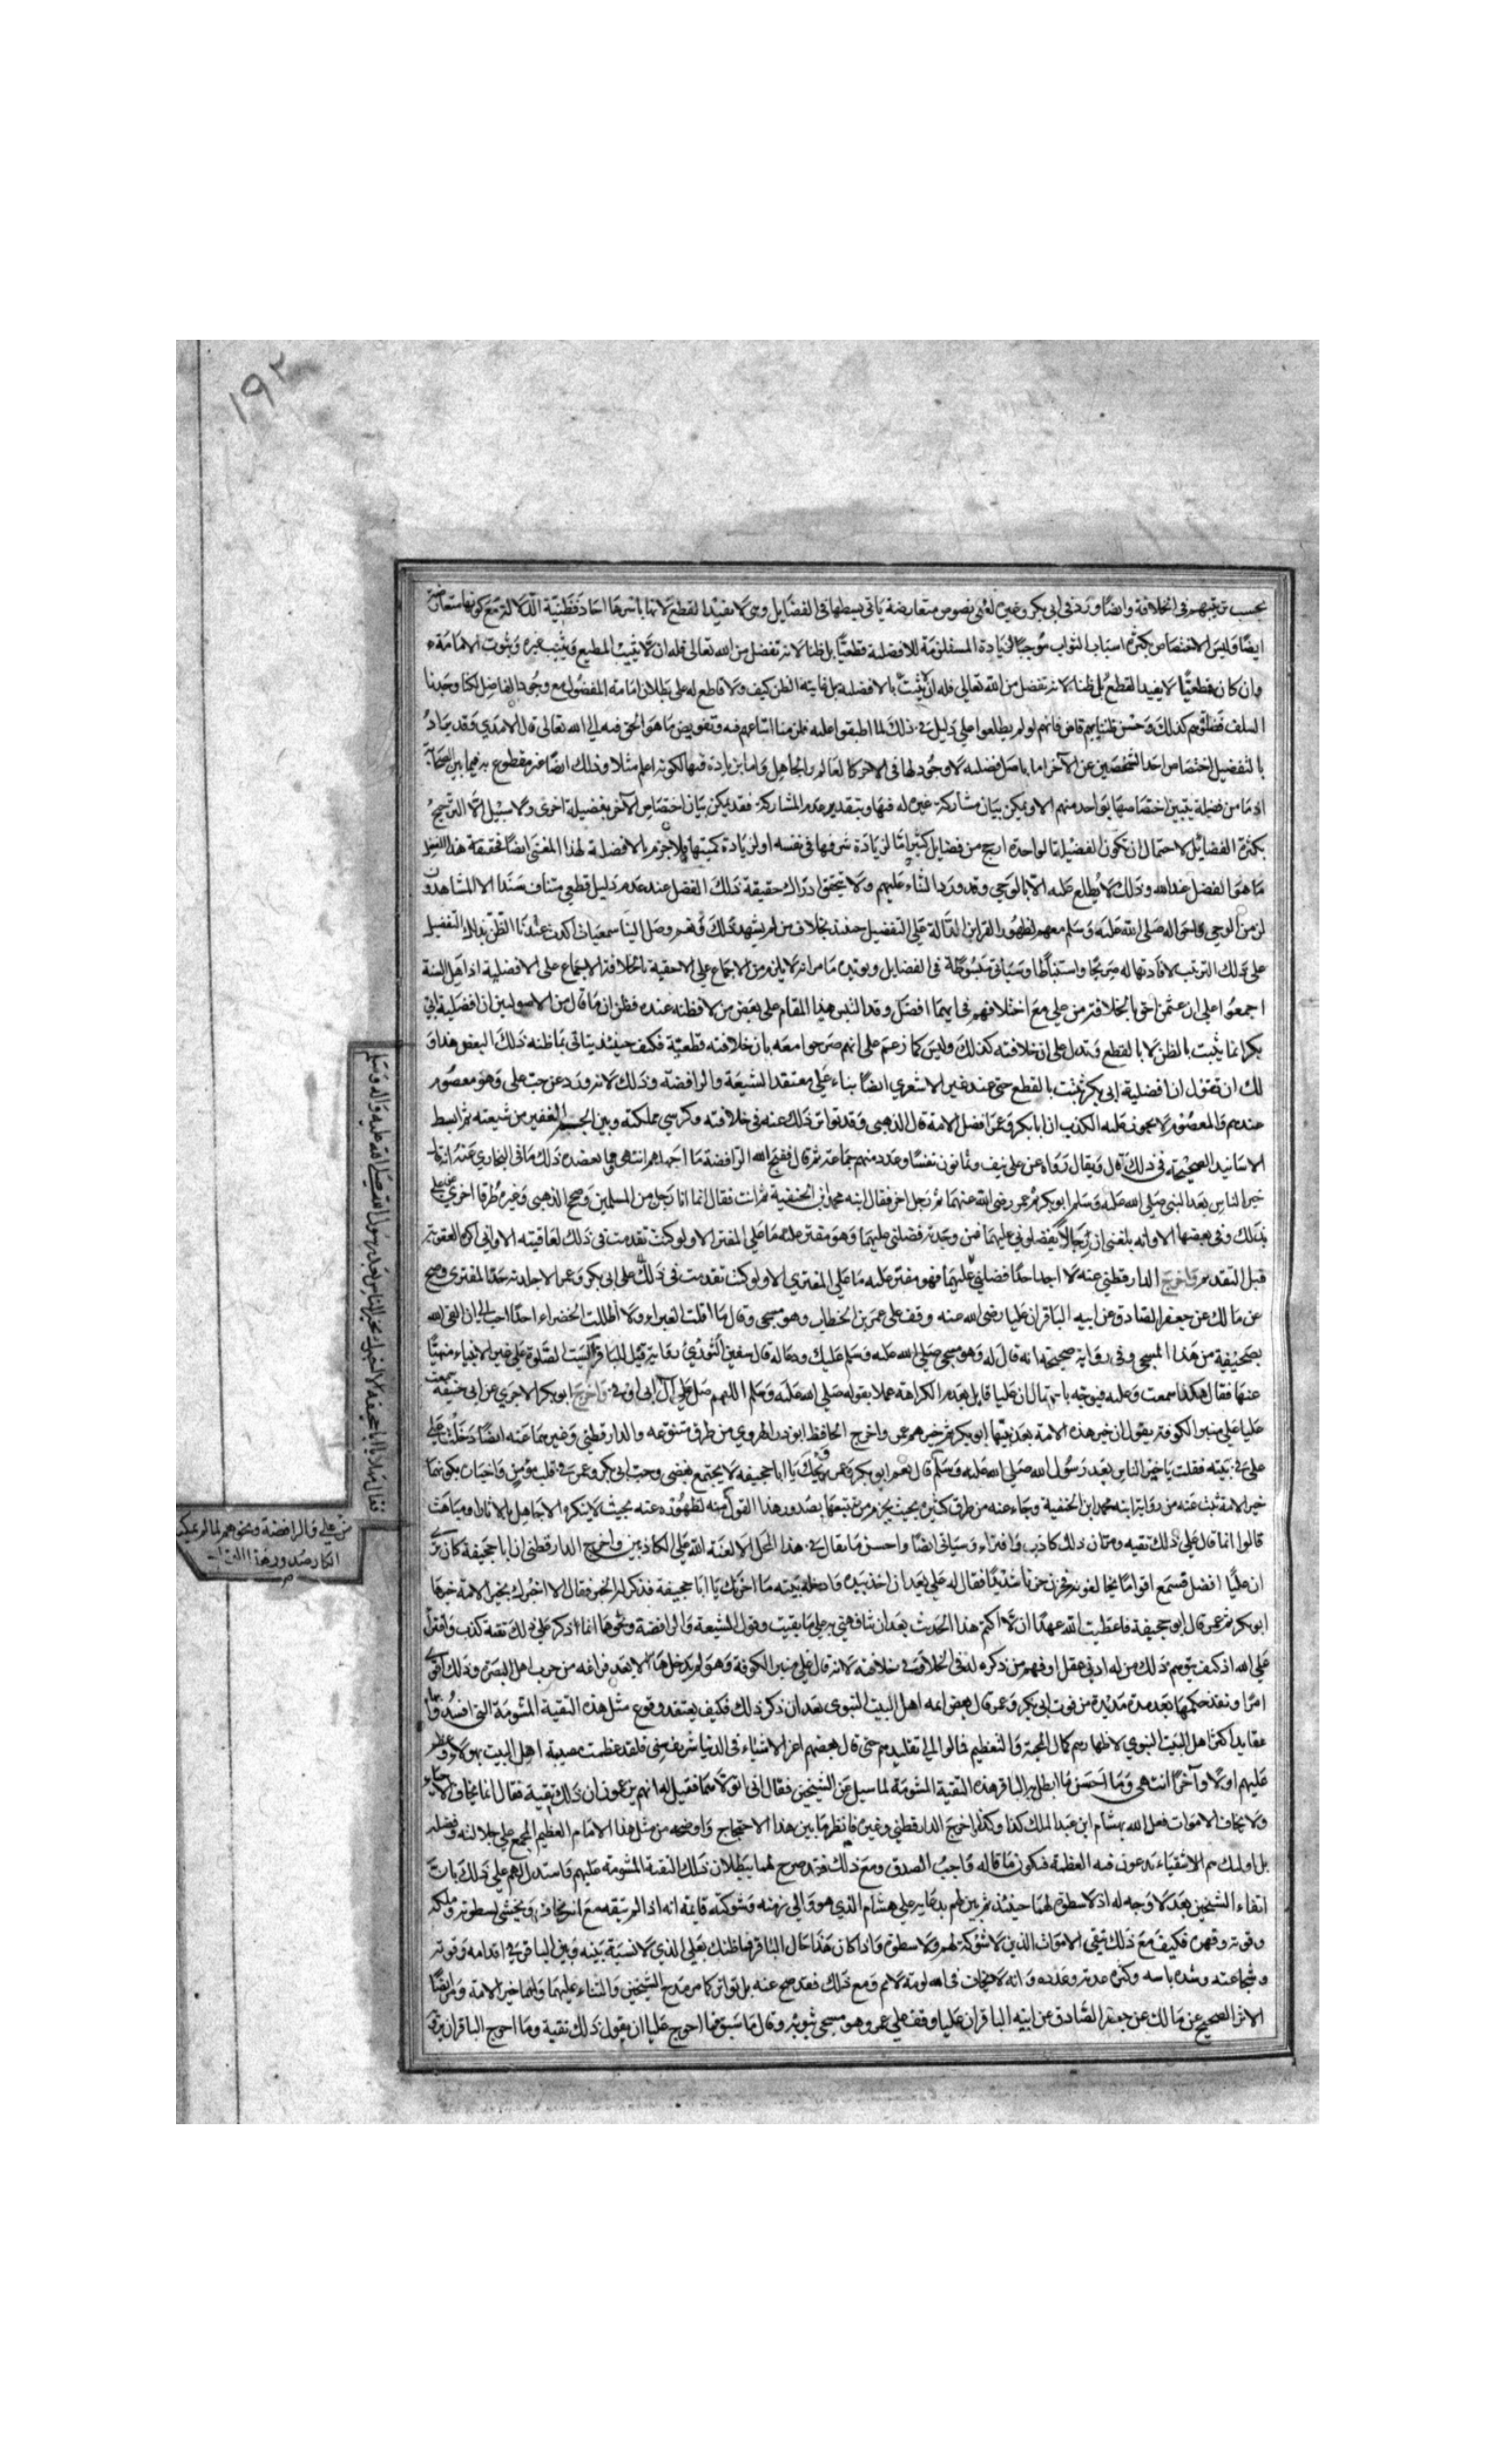 ١٩٢
بحسب ترتيبهم في الخلافة وايضا ورد في ابي بكر وغيره كعلي نصوص متعارضة ياتي بسطها في الفضايل وهي لا تفيد القطع لانها باسرها احاد وظنية الدلالة مع كونها متعارضة
ايضا وليس الاختصاص بكثرة اسباب الثواب موجبا لزيادة المستلزمة للافضلية قطعيا بل ظنا لانه تفضل من الله تعالى فله ان لا يثيب المطيع ويثيب غيره وثبوت الامامة
وان كان قطعيا لا يفيد القطع بل ظنا كيف ولا قاطع له على بطلان امامة المفضول مع وجود الفاضل لكنا وجدنا
السلف فضلوهم كذلك وحسن ظننا بهم قاض فانهم لو لم يطلعوا على دليل في ذلك لما اطبقوا عليه فلزمنا اتباعهم فيه وتفويض ما هو الحق فيه الى الله تعالى قال الامدي وقد يراد
بالتفضيل اختصاص احد الشخصين عن الآخر اما باصل فضيلة لا وجود لها في الاخر كالعالم والجاهل واما بزيادة فيها ككونه اعلم مثلا وذلك ايضا غير مقطوع به فيما بين الصحابة
اذ ما من فضيلة يتبين اختصاصها بواحد منهم الا ويمكن بيان مشاركة غيره له فيها وبتقدير عدم المشاركة فقد يمكن بيان اختصاص الآخر بفضيلة اخرى ولا سبيل الى الترجيح
بكثرة الفضايل لاحتمال ان تكون الفضيلة الواحدة ارجح من فضايل كثيرة اما لزيادة شرفها في نفسه او لزيادة كميتها فلا جزم بالافضلية لهذا المعنى ايضا فحقيقة هذا الفضل
ما هو الفضل عند الله وذلك لا يطلع عليه الا بالوحي وقد ورد الثناء عليهم ولا يتحقق ادراك حقيقة ذلك الفضل عند عدم دليل قطعي متنا وسندا الا المشاهدون
لزمن الوحي واحواله صلى الله عليه وسلم معهم لظهور القراين الدالة على التفضيل حينئذ بخلاف من لم يشهد ذلك نعم وصل الينا سمعيات اكدت عندنا الظن بذلك التفضيل
على ذلك الترتيب لافادتها له صريحا واستنباطا وسياتي مبسوطة في الفضايل ويؤيده ما مر انه لا يلزم من الاجماع على الاحقية بالخلافة الاجماع على الافضلية اذ اهل السنة
اجمعوا على ان عثمن احق بالخلافة من علي مع اختلافهم في ايهما افضل وقد التبس هذا المقام على بعض من لا فطنة عنده فظن ان ما قال من الاصوليين ان افضلية ابي
بكر انما يثبت بالظن لا بالقطع وتدل على ان خلافته كذلك وليس كما زعم على انهم صرحوا معه بان خلافته قطعية فكيف حينئذ يتاتى ما ظنه ذلك البعض هذا و
لك ان تقول ان افضلية ابي بكر تثبت بالقطع حتى عند غير الاشعري ايضا بناء على معتقد الشيعة والرافضة وذلك لانه ورد عن حب علي وهو معصوم
عندهم والمعصوم لا يجوز عليه الكذب ان ابا بكر وعمر افضل الامة قال الذهبي وقد تواتر ذلك عنه في خلافته وكرسي مملكته وبين الجم الغفير من شيعته ثم بسط
الاسانيد الصحيحة في ذلك قال ويقال رواه عن علي نيف وثمانون نفسا وعدد منهم جماعة ثم قال فقبح الله الرافضة ما اجهلهم انتهى ومما يعضده ذلك ما في البخاري عنه انه قال
خير الناس بعد النبي صلى الله عليه وسلم ابو بكر ثم عمر رضي الله عنهما ثم رجل اخر فقال ابنه محمد ابن الحنفية ثم انت فقال انما انا رجل من المسلمين وصح الذهبي وغيره طرقا اخرى عن علي
بذلك وفي بعضها الا وانه بلغني ان رجالا يفضلوني عليهما فمن وجدته فضلني عليهما فهو مفتر عليه ما على المفتر الا ولو كنت تقدمت في ذلك لعاقبته الا واني اكره العقوبة
قبل التقدم واخرج الدارقطني عنه لا اجد احدا فضلني عليهما فهو مفتر عليه ما على المفتري الا ولو كنت تقدمت في ذلك على ابي بكر وعمر الا جلدته حد المفتري وصح
عن مالك عن جعفر الصادق عن ابيه الباقر ان عليا رضي الله عنه وقف على عمر بن الخطاب وهو مسجى وقال ما اقلت الغبراء ولا اظلت الخضراء احدا احب الي ان القى الله
بصحيفته من هذا المسجى وفي رواية صحيحة انه قال له وهو مسجى صلى الله عليه وسلم عليك ودعا له قال سفين الثوري رواية قيل للباقر اليست الصلوة على غير الانبياء منهيا
عنها فقال هكذا سمعت وعليه فيوجه باحتمال ان عليا قايل بعدم الكراهة عملا بقوله صلى الله عليه وسلم اللهم صل على آل ابي اوفى واخرج ابو بكر الاجري عن ابي جحيفة سمعت
عليا على منبر الكوفة يقول ان خير هذه الامة بعد نبيها ابو بكر ثم خيرهم عمر واخرج الحافظ ابو ذر الهروي من طرق متنوعة والدارقطني وغيرهما عنه ايضا دخلت على
علي في بيته فقلت يا خير الناس بعد رسول الله صلى الله عليه وسلم قال نعم ابو بكر وعمر ويحك يا ابا جحيفة لا يجتمع بغضي وحب ابي بكر وعمر في قلب مؤمن واخباره بكونهما
خير الامة ثبت عنه من رواية ابنه محمد ابن الحنفية وجاء عنه من طرق كثيرة بحيث يجزم من تتبعها بصدور هذا القول منه لظهوره عنه بحيث لا ينكره الا جاهل بالاثار او مباهت
قالوا انما قال علي ذلك تقية ومر ان ذلك كذب وافتراء وسياتي ايضا واحسن ما يقال في هذا المحل الا لعنة الله على الكاذبين واخرج الدارقطني ان ابا جحيفة كان يرى
ان عليا افضل فسمع اقواما يخالفونه فحزن حزنا شديدا فقال له علي بعد ان اخذ بيده وادخله بيته ما احزنك يا ابا جحيفة فذكر له الخبر فقال الا اخبرك بخير الامة خيرها
ابو بكر ثم عمر قال ابو جحيفة فاعطيت الله عهدا ان لا اكتم هذا الحديث بعد ان شافهني به علي ما بقيت وقول الشيعة والرافضة ونحوهما انما ذكر علي ذلك تقية كذب وافتراء
على الله اذ كيف يتوهم ذلك من له ادنى عقل او فهم من ذكره له في الخلافة في خلافته لانه قال على منبر الكوفة وهو لم يدخلها الا بعد فراغه من حرب اهل البصرة وذلك اقوى
امرا ونفذ حكمها بعد مدة مديدة من فوت ابي بكر وعمر قال بعض ايمة اهل البيت النبوي بعد ان ذكر ذلك فكيف يعتقد وقوع مثل هذه التقية المشومة التي افسدوا بها
عقايد اكثر اهل البيت النبوي لاظهارهم كمال المحبة والتعظيم فمالوا الى تقليدهم حتى قال بعضهم اعز الاشياء في الدنيا شريف سني فلقد عظمت مصيبة اهل البيت بهؤلاء وعظم
عليهم اولا وآخرا انتهى وما احسن ما ابطل به الباقر هذه التقية المشومة لما سيل عن الشيخين فقال اني اتولاهما فقيل له انهم يزعمون ان ذلك تقية فقال انما يخاف الاحياء
ولا يخاف الاموات فعل الله بهشام ابن عبد الملك كذا وكذا اخرجه الدارقطني وغيره فانظر ما بين هذا الاحتجاج واوضحه من مثل هذا الامام العظيم المجمع على جلالته وفضله
بل اوليك هم الاشقياء يدعون فيه العظمة فيكون ما قاله واجب الصدق ومع ذلك فقد صرح لهما ببطلان تلك التقية المشومة عليهم واستدل لهم على ذلك بان
اتقاء الشيخين بعد لا وجه له اذ لا سطوة لهما حينئذ ثم بين لهم بدعايه على هشام الذي هو والي زمنه وشوكته قايمة انه اذا لم يتقه مع انه يخاف ويخشى لسطوته وملكه
وقوته وقهره فكيف مع ذلك يتقي الاموات الذين لا شوكة لهم ولا سطوة واذا كان هذا حال الباقر فما ظنك بعلي الذي لا نسبة بينه وبين الباقر في اقدامه وقوته
وشجاعته وشدة باسه وكثرة عدته وعدده وانه لا يخاف في الله لومة لايم ومع ذلك فقد صح عنه بل تواتر كما مر مدح الشيخين والثناء عليهما وانهما خير الامة ومر ايضا
الاثر الصحيح عن مالك عن جعفر الصادق عن ابيه الباقر ان عليا وقف على عمر وهو مسجى بثوبه وقال ما سبق فما احوج عليا ان يقول ذلك تقية وما احوج الباقر ان يرويه
فقال مهلا يا ابا جحيفة الا اخبرك بخير الناس بعد رسول الله صلى الله عليه واله وسلم
من علي والرافضة ونحوهم لما لم يمكنهم
انكار صدور هذا القول